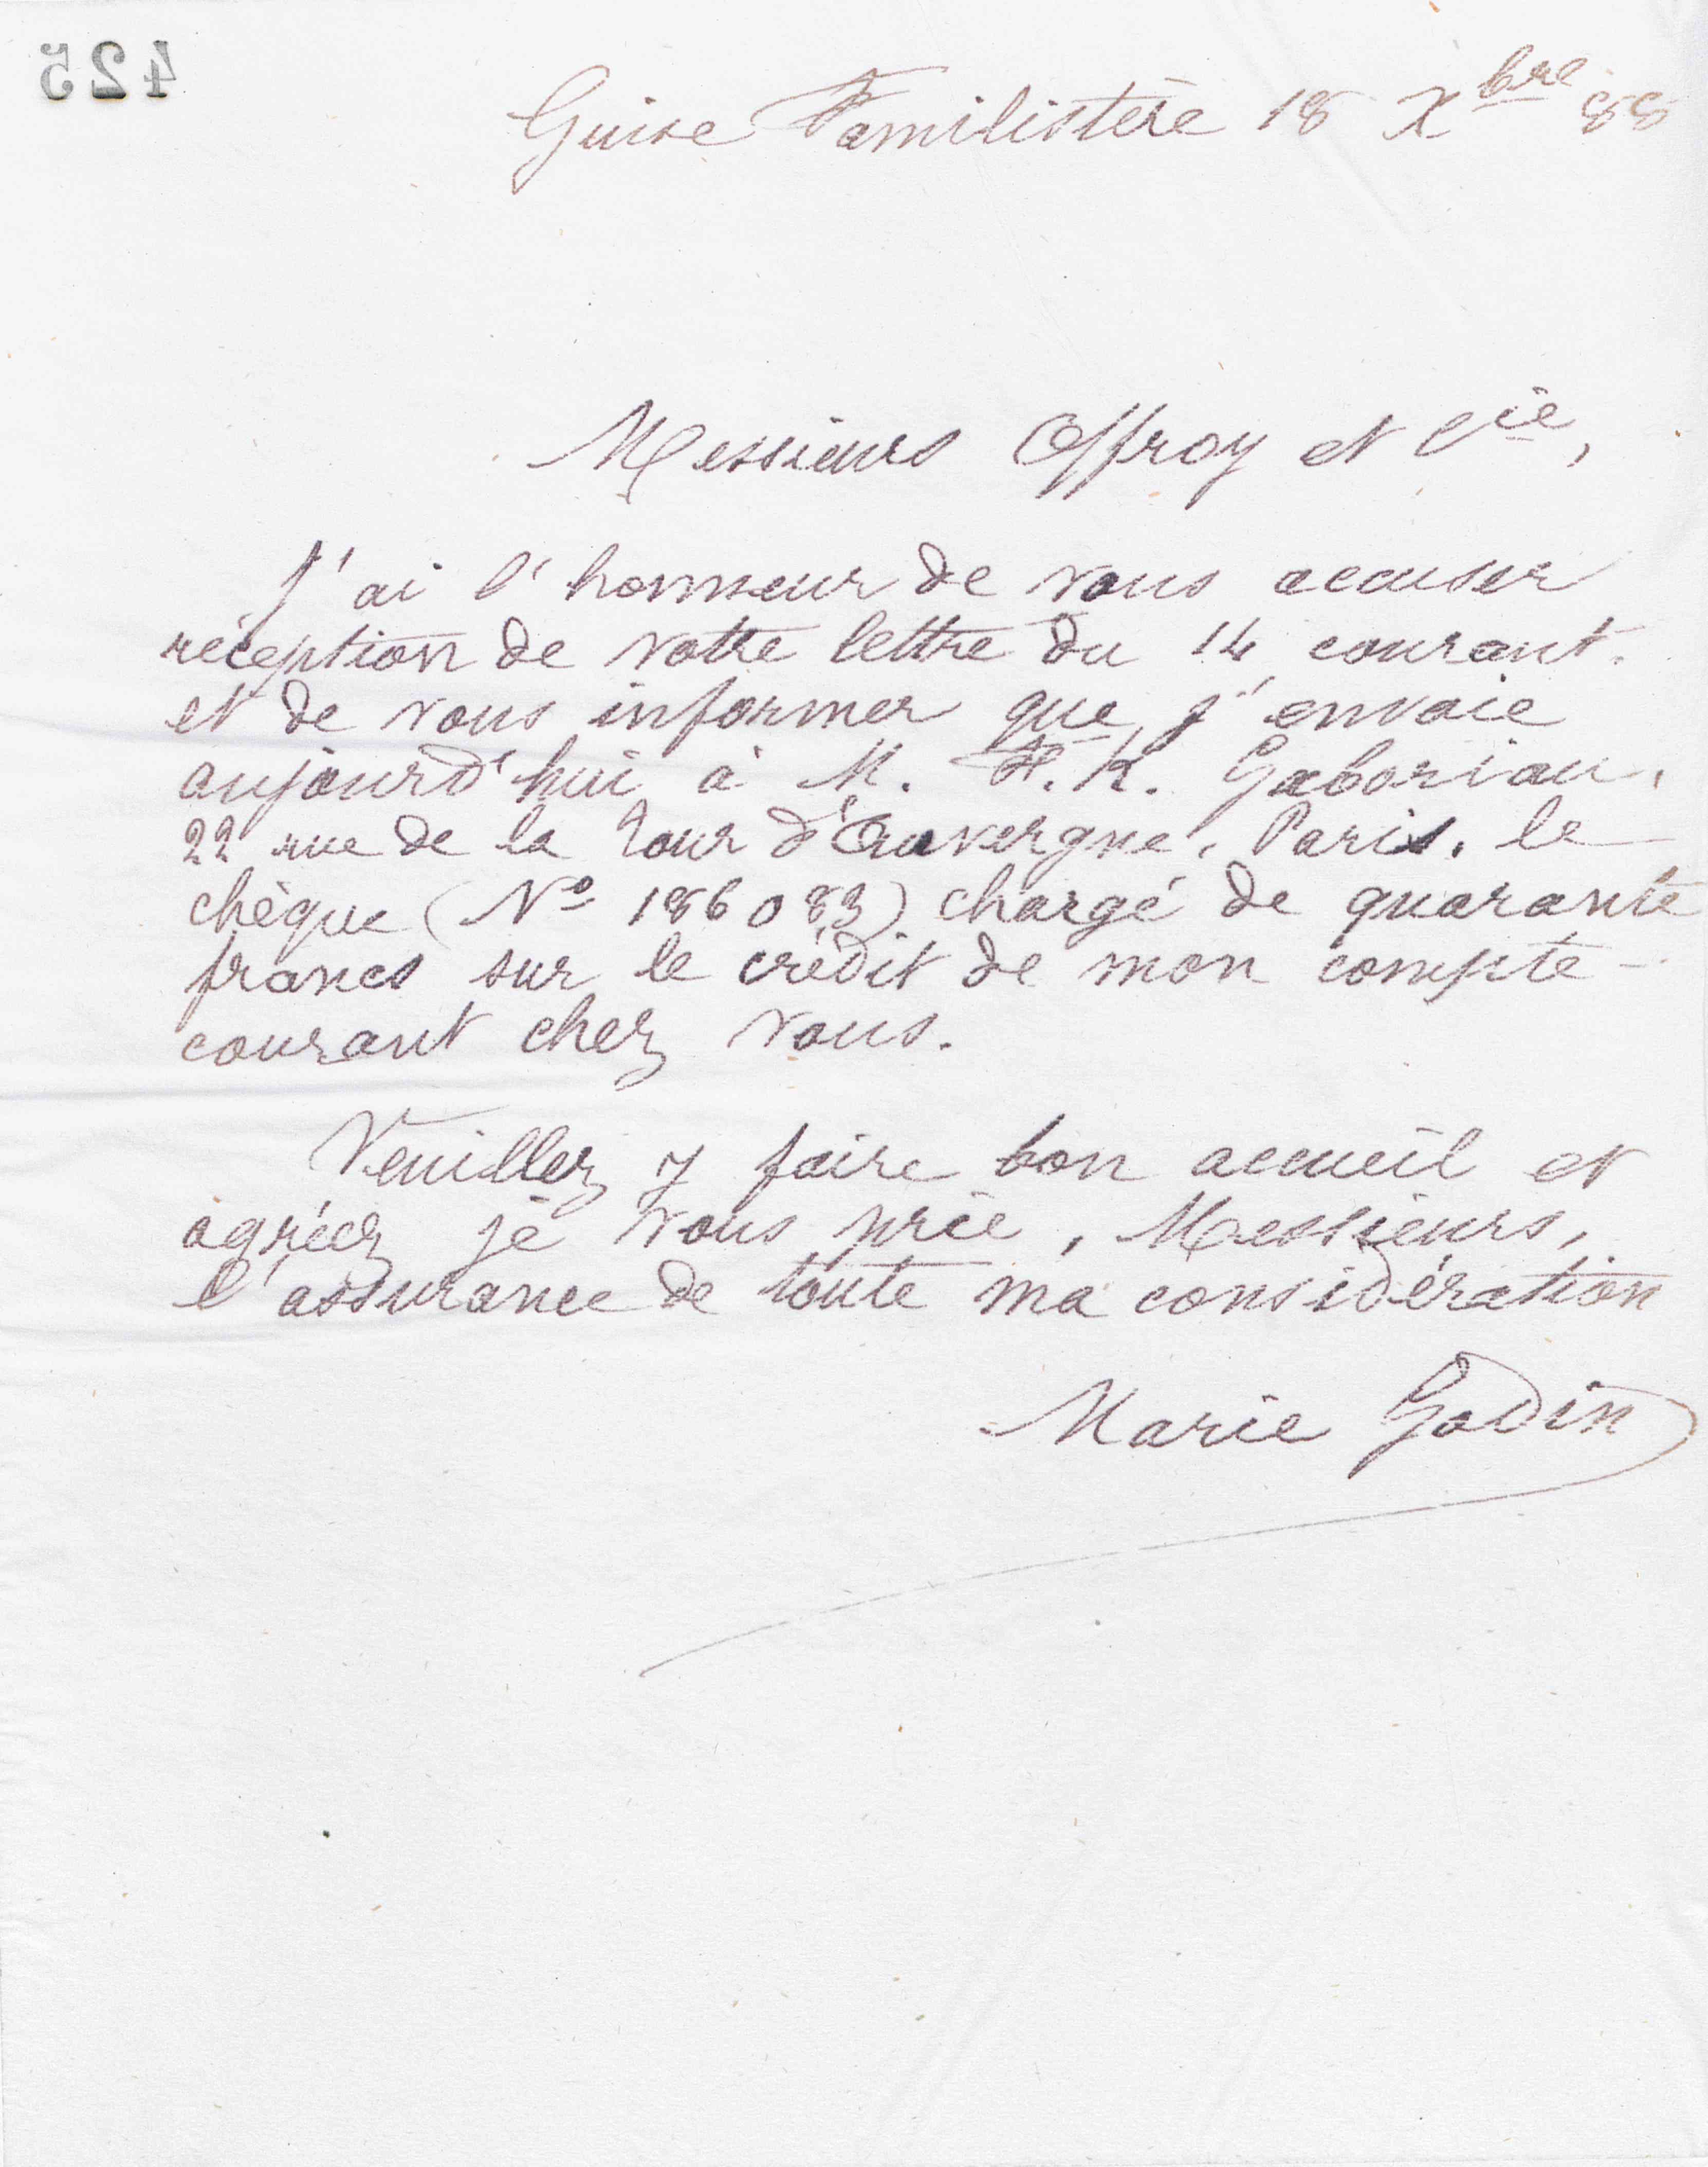 425
Guise Familistère 18 Xbre 88
Messieurs Offroy et Cie,
J'ai l'honneur de vous accuser
réception de votre lettre du 14 courant.
et de vous informer que j'envoie
aujourd'hui à M. H. K. Gaboriau,
22 rue de la Tour d'Auvergne, Paris. le
chèque (No 186083) chargé de quarante
francs sur le crédit de mon compte-
courant chez vous.
Veuillez y faire bon accueil et
agréez je vous prie, Messieurs,
l'assurance de toute ma considération
Marie Godin